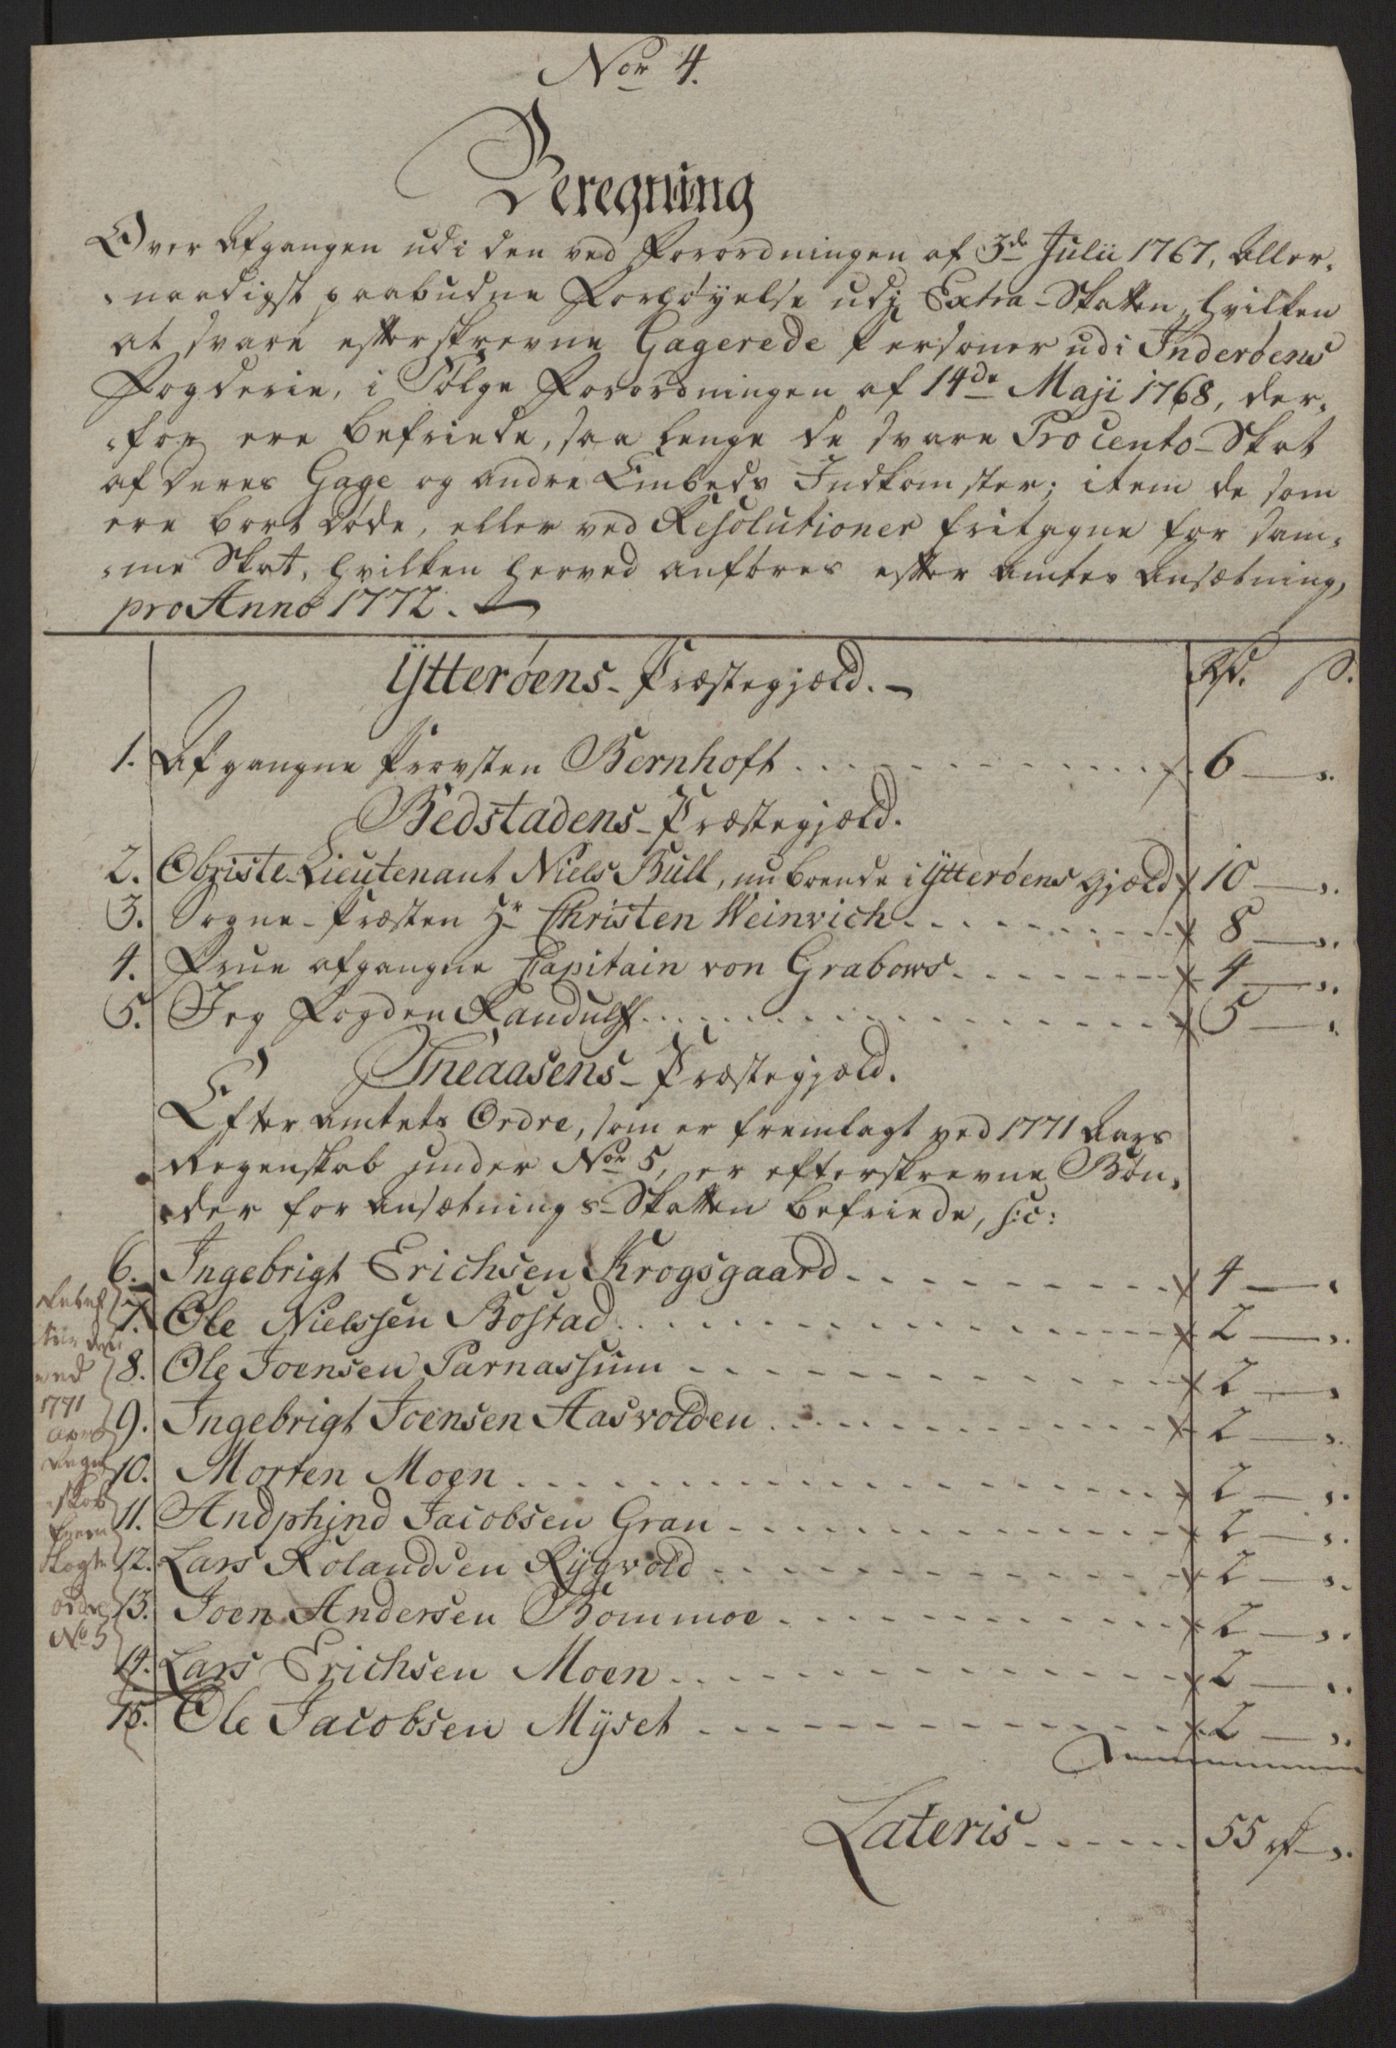 Nor 4.
Beregning
Over Afgangen udi den ved Forordningen af 3de Julii 1767, Aller-
naadigst paabudne Forhøyelse udj Extra-Skatten, hvilken
at svare efterskrevne Gagerede Personer udi Inderøens
Fogderie, i Følge Forordningen af 14de Maji 1768, der-
for ere befriede, saa lenge de svare Procento-Skat
af deres Gage og andre Embeds Indkomster; item de som
ere bort døde, eller ved Resolutioner fritagne for sam-
me Skat, hvilken herved anføres efter Amtes Ansætning,
pro Anno 1772.
Ytterøens-Præstegjæld. Rd. s.
1. Afgangne Provsten Bernhoft 6
Bedstadens-Præstegjæld.
2. Obriste-Lieutenant Niels Bull, nu boende i Ytterøens gjæld 10
3. Sogne-Præsten Hr Christen Weinvich 8
4. Frue afgangne Capitain von Grabows 4
5. Jeg Fogden Randulff 5
Sneaasens-Præstegjæld.
Efter Amtets Ordre, som er fremlagt ved 1771 Aars
Regenskab under Nor 5, er efterskrevne Bøn-
der for Ansætnings-Skatten befriede, s:c:
6. Ingebrigt Erichsen Krogsgaard 4
7. Ole Nielssen Bostad 2
8. Ole Joensen Parnassum 2
9. Ingebrigt Joensen Aasvolden 2
10. Morten Moen 2
11. Andphind Jacobsen Gran 2
12. Lars Rolandsen Rygvold 2
13. Joen Andersen Bommoe 2
14. Lars Erichsen Moen 2
15. Ole Jacobsen Myset 2
ved
1771
Aars
Regn
skab
frem
lagte
ordre
No 5
Lateris 55 rd